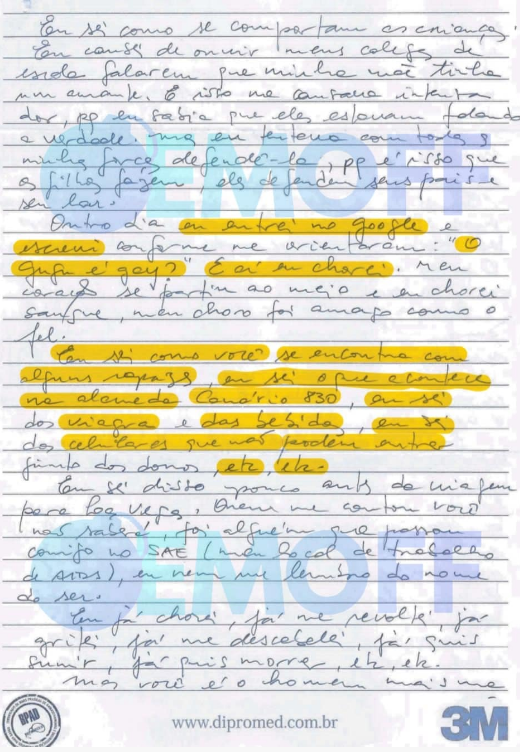 Eu sei como se comportam as crianças.
Eu cansei de ouvir meus colegas de
escola falarem que minha mãe tinha
um amante. E isso me causava intensa
dor, pq eu sabia que eles estavam falando
a verdade. Mas eu tentava com toda a
minha força defendê-la, pq é isso que
os filhos fazem, eles defendem seus pais e
seu lar.
Outro dia eu entrei no google e
escrevi conforme me orientaram: "O
Gugu é gay?" E aí eu chorei. Meu
coração se partiu ao meio e eu chorei
sangue, meu choro foi amargo como o
fel.
Eu sei como você se encontra com
alguns rapazes, eu sei o que acontece
na alameda Canário 830, eu sei
dos viagra e das bebidas, eu sei
dos celulares que não podem entrar
junto dos donos, etc, etc.
Eu sei disso pouco antes da viagem
para Las Vegas. Quem me contou você
não saberá, foi alguém que passou
comigo no SAE (meu local de trabalho
de AIDS), eu nem me lembro do nome
do ser.
Eu já chorei, já me revoltei, já
gritei, já me descabelei, já quis
sumir, já quis morrer, etc, etc.
Mas você é o homem mais me
EMOFF
EMOFF
DPAD
www.dipromed.com.br
3M